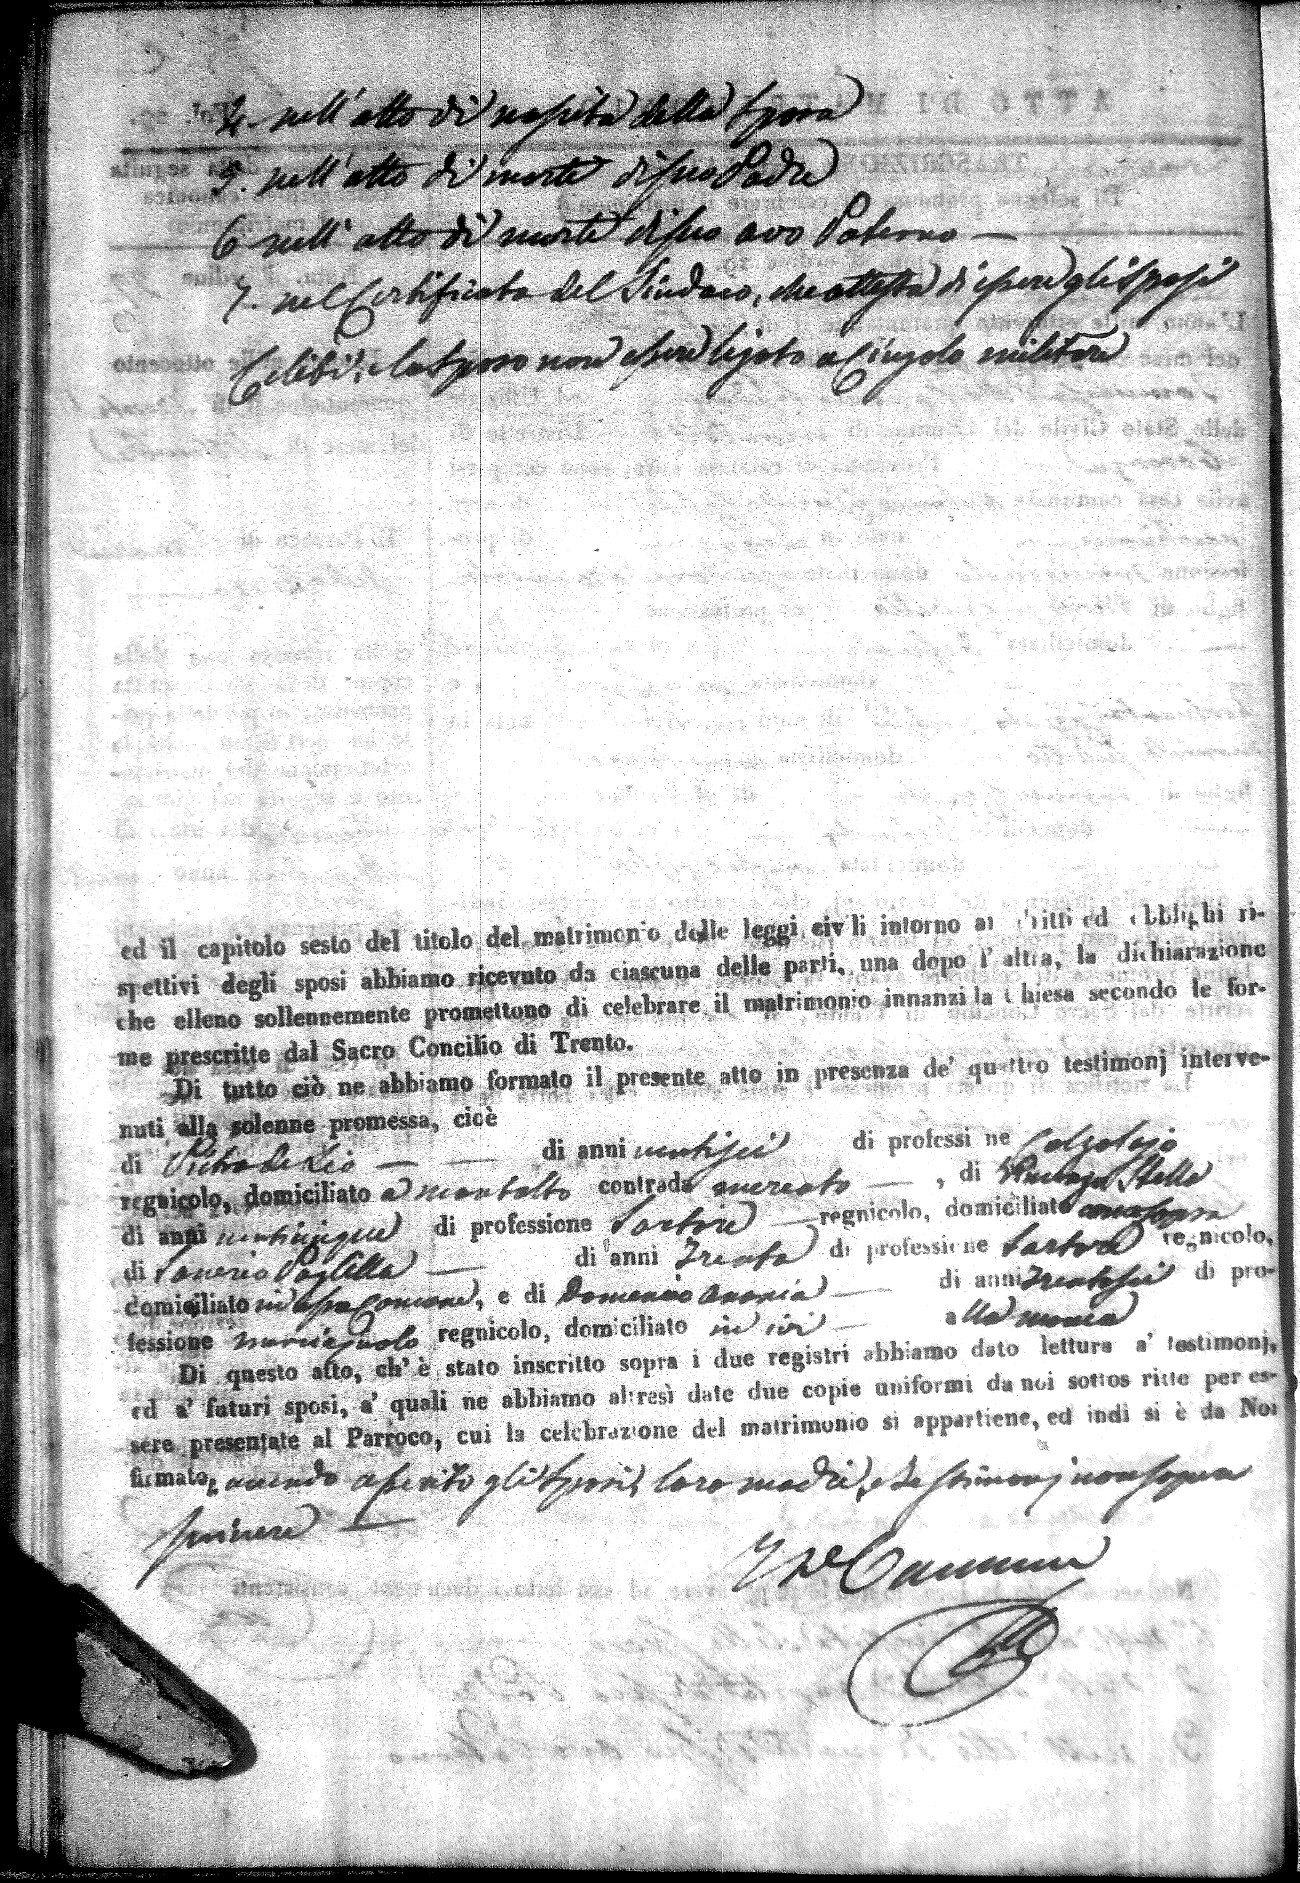 4. nell'atto di nascita della sposa
5. nell'atto di morte di suo Padre
6 nell'atto di morte di suo avo Paterno —
7. nel Certificato del Sindaco, che attesta di essere gli sposi
Celibi, e lo sposo non essere legato a Cingolo militare
ed il capitolo sesto del titolo del matrimonio delle leggi civili intorno ai dritti ed obblighi ri-
spettivi degli sposi abbiamo ricevuto da ciascuna delle parti, una dopo l'altra, la dichiarazione
che elleno sollennemente promettono di celebrare il matrimonio innanzi la Chiesa secondo le for-
me prescritte dal Sacro Concilio di Trento.
Di tutto ciò ne abbiamo formato il presente atto in presenza de' quattro testimonj interve-
nuti alla solenne promessa, cioè
di Pietro de Lio — — di anni ventisei di professione Calzolajo
regnicolo, domiciliato a montalto contrada mercato — , di Vincenzo Stella
di anni venticinque di professione Sartore — regnicolo, domiciliato come sopra
di Saverio Paglilla — di anni Trenta di professione Sartore regnicolo,
domiciliato in essa Comune, e di Domenico Anania — di anni Trentasei di pro-
fessione regnicolo, domiciliato in ivi — alla
Di questo atto, ch'è stato inscritto sopra i due registri abbiamo dato lettura a' testimonj,
ed a' futuri sposi, a' quali ne abbiamo altresì date due copie uniformi da noi sottoscritte per es-
sere presentate al Parroco, cui la celebrazione del matrimonio si appartiene, ed indi si è da Noi
firmato, avendo asserito gli sposi, loro madri, e testimonj non saper
scrivere —